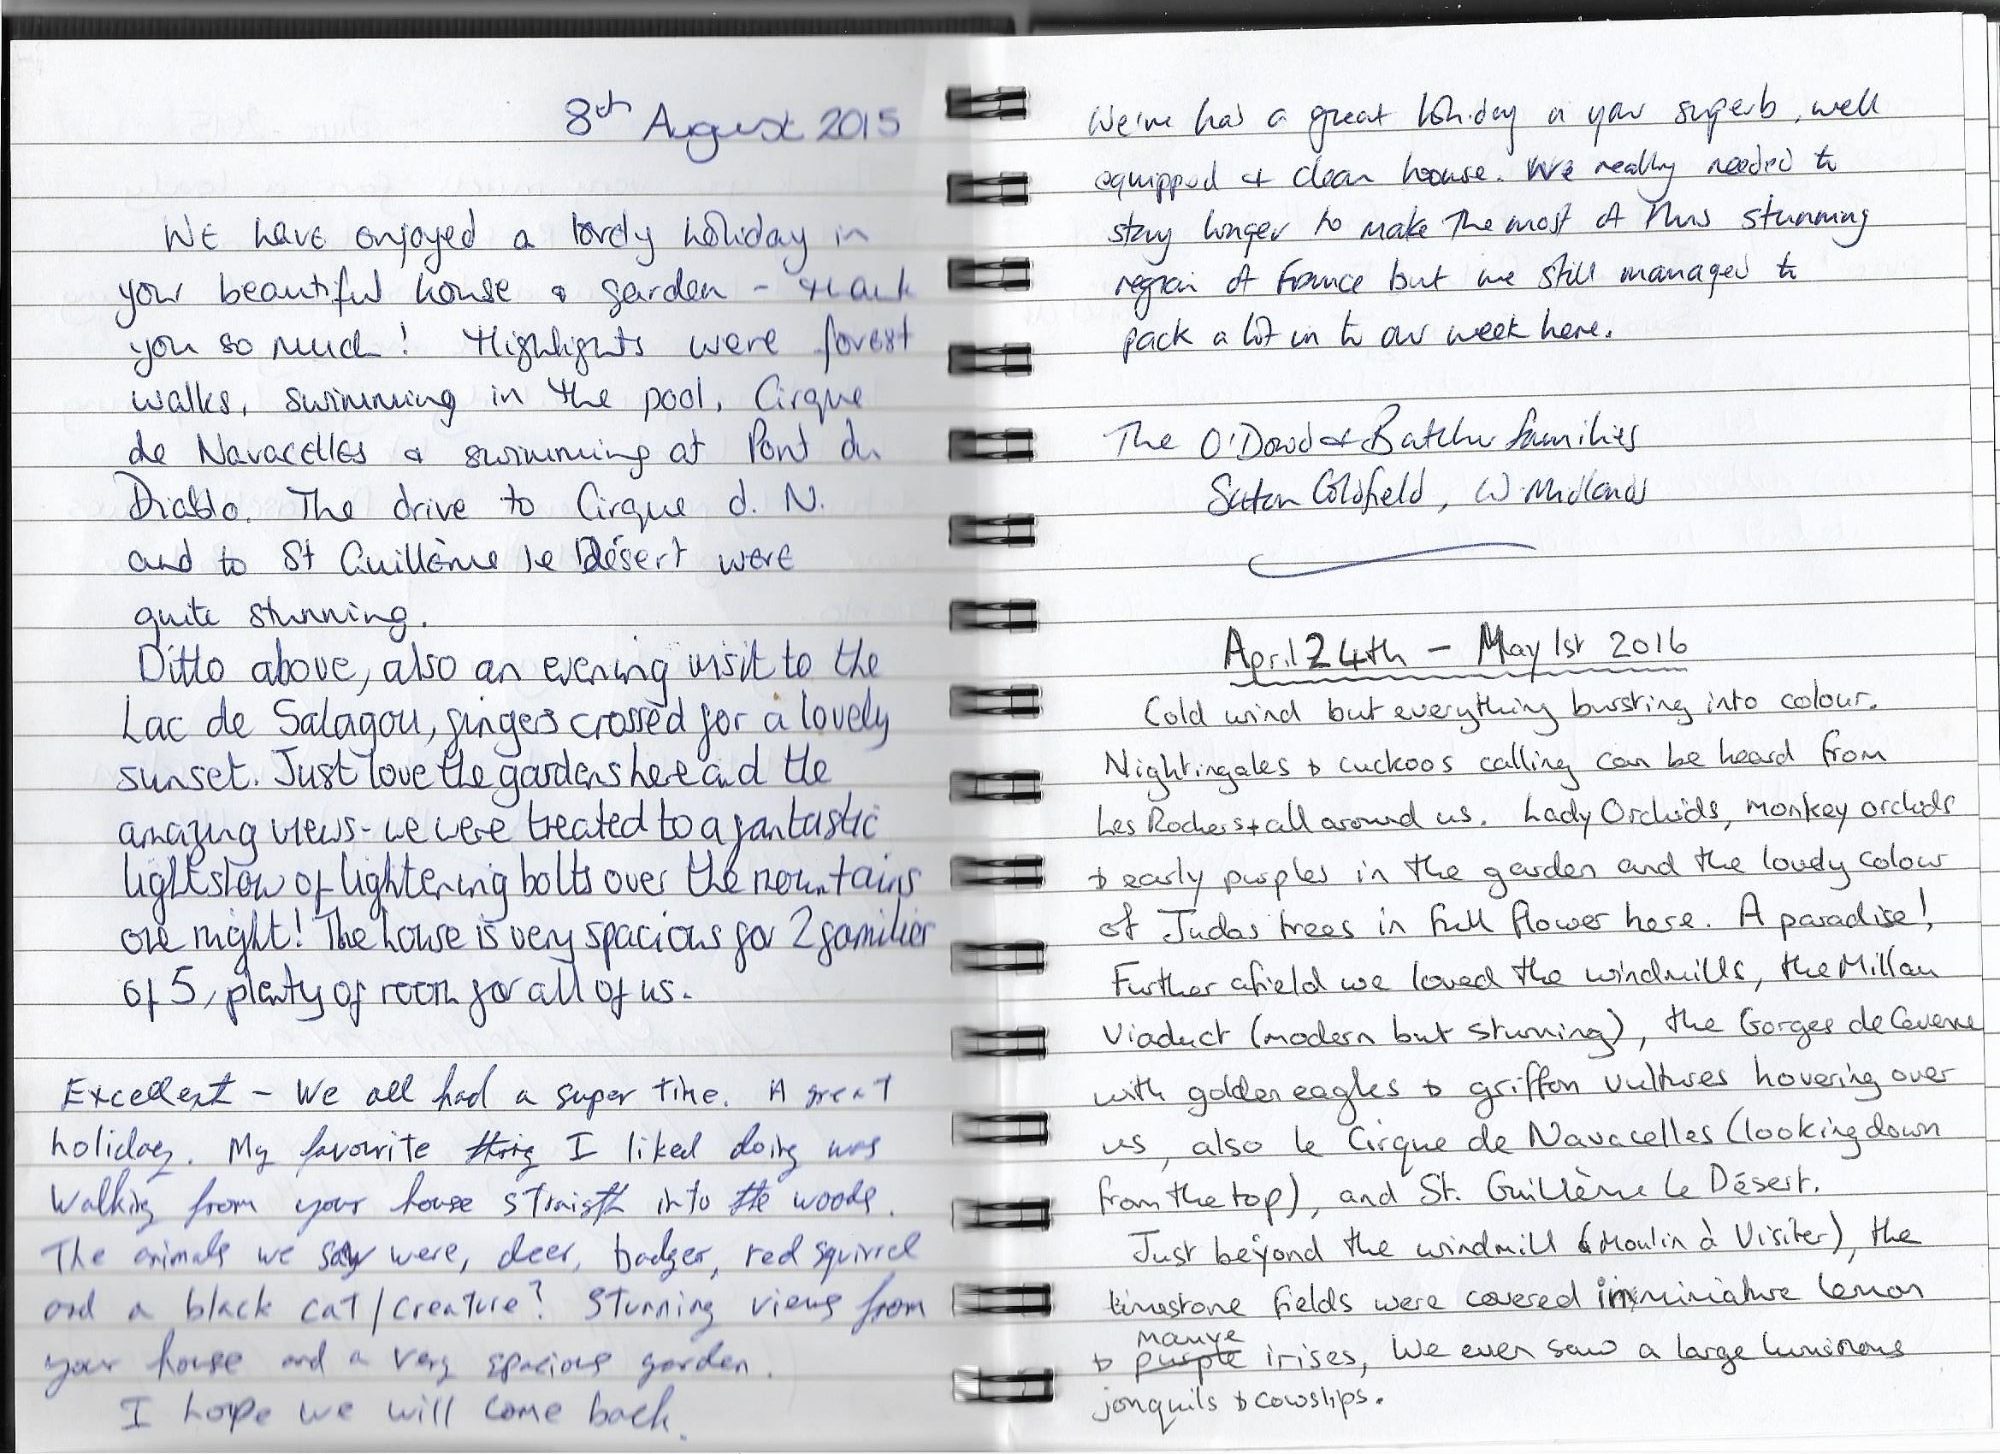 8th August 2015
We have enjoyed a lovely holiday in
your beautiful house & garden - thank
you so much! Highlights were forest
walks, swimming in the pool, Cirque
de Navacelles & swimming at Pont du
Diablo. The drive to Cirque d. N.
and to St Guillème le Désert were
quite stunning.
Ditto above, also an evening visit to the
Lac de Salagou, fingers crossed for a lovely
sunset. Just love the gardens here and the
amazing views - we were treated to a fantastic
light show of lightening bolts over the mountains
one night! The house is very spacious for 2 families
of 5, plenty of room for all of us.
Excellent - We all had a super time. A great
holiday. My favourite thing I liked doing was
walking from your house straight into the woods.
The animals we saw were, deer, badger, red squirrel
and a black cat/creature? Stunning views from
your house and a very spacious garden.
I hope we will come back.
We've had a great holiday in your superb, well
equipped & clean house. We really needed to
stay longer to make the most of this stunning
region of France but we still managed to
pack a lot in to our week here.
The O'Dowd & Batchu families
Sutton Coldfield, W. Midlands
April 24th - May 1st 2016
Cold wind but everything bursting into colour.
Nightingales & cuckoos calling can be heard from
Les Rochers & all around us. Lady Orchids, monkey orchids
& early purples in the garden and the lovely colour
of Judas trees in full flower here. A paradise!
Further afield we loved the windmills, the Millau
Viaduct (modern but stunning), the Gorges de
with golden eagles & griffon vultures hovering over
us, also le Cirque de Navacelles (looking down
from the top), and St. Guillème le Désert.
Just beyond the windmill (Moulin à Visiter), the
limestone fields were covered in miniature lemon
& purple mauve irises, We even saw a large luminous
jonquils & cowslips.